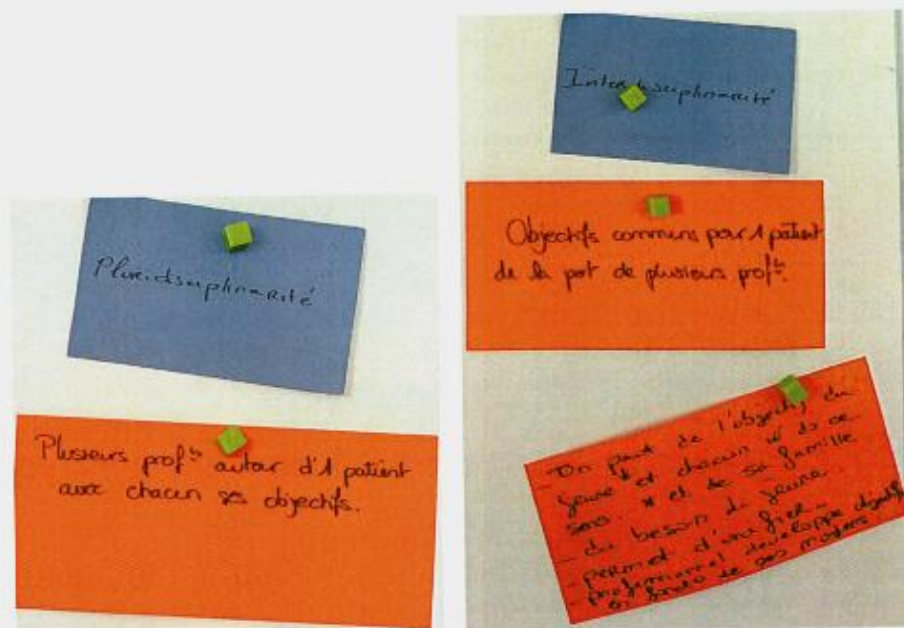 Pluridisciplinarité
Plusieurs prof^ls autour d'1 patient
avec chacun ses objectifs.
Interdisciplinarité
Objectifs communs pour 1 patient
de la part de plusieurs prof^ls.
- On part de l'objectif du
jeune * et chacun ds ce
sens. * et de sa famille
- du besoin du jeune.
- permet d'unifier.
- professionnel développe objectifs
en fonction de ses moyens